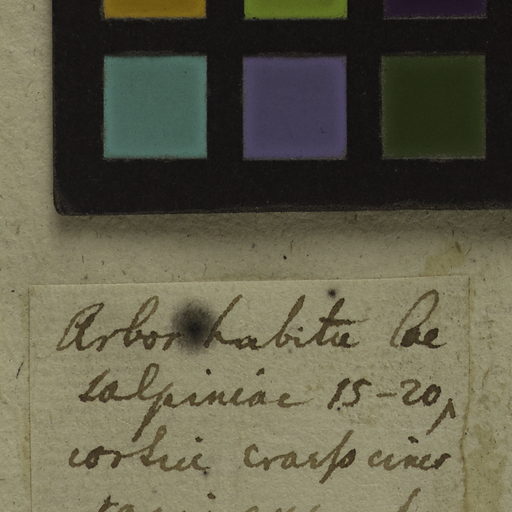 Arbor habitu Cae
salpiniae 15-20p
cortice crasso ciner